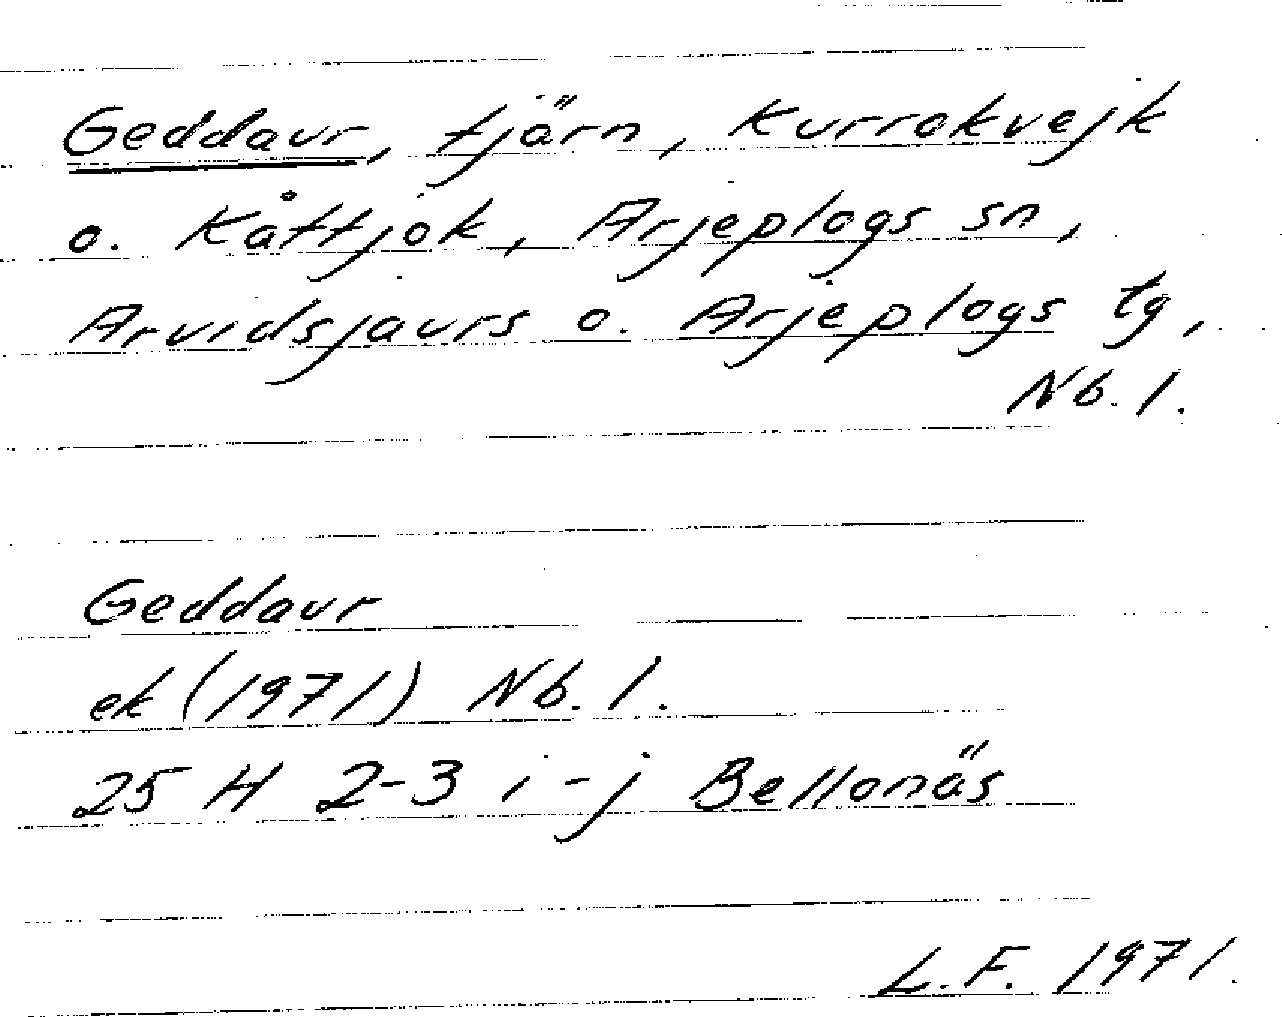 Geddaur, tjärn, Kurrokvejk
o. Kåttjok, Arjeplogs sn,
Arvidsjaurs o. Arjeplogs tg,
Nb. l.
Geddaur
ek (1971) Nb. l.
25 H 2-3 i-j Bellonäs
L.F. 1971.